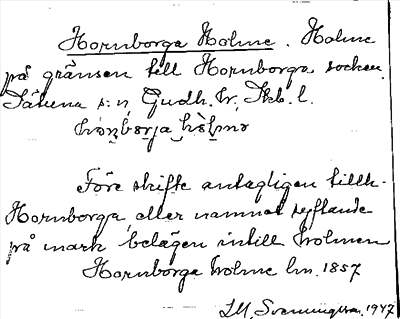 Hornborga Holme. Holme
på gränsen till Hornborga socken.
Såtuna s:n, Gudh. hr, Skb. l.
Före skifte antagligen tillh.
Hornborga, eller namnet syftande
på mark belägen intill holmen
Hornborga holme lm. 1857
Svenningsson 1947